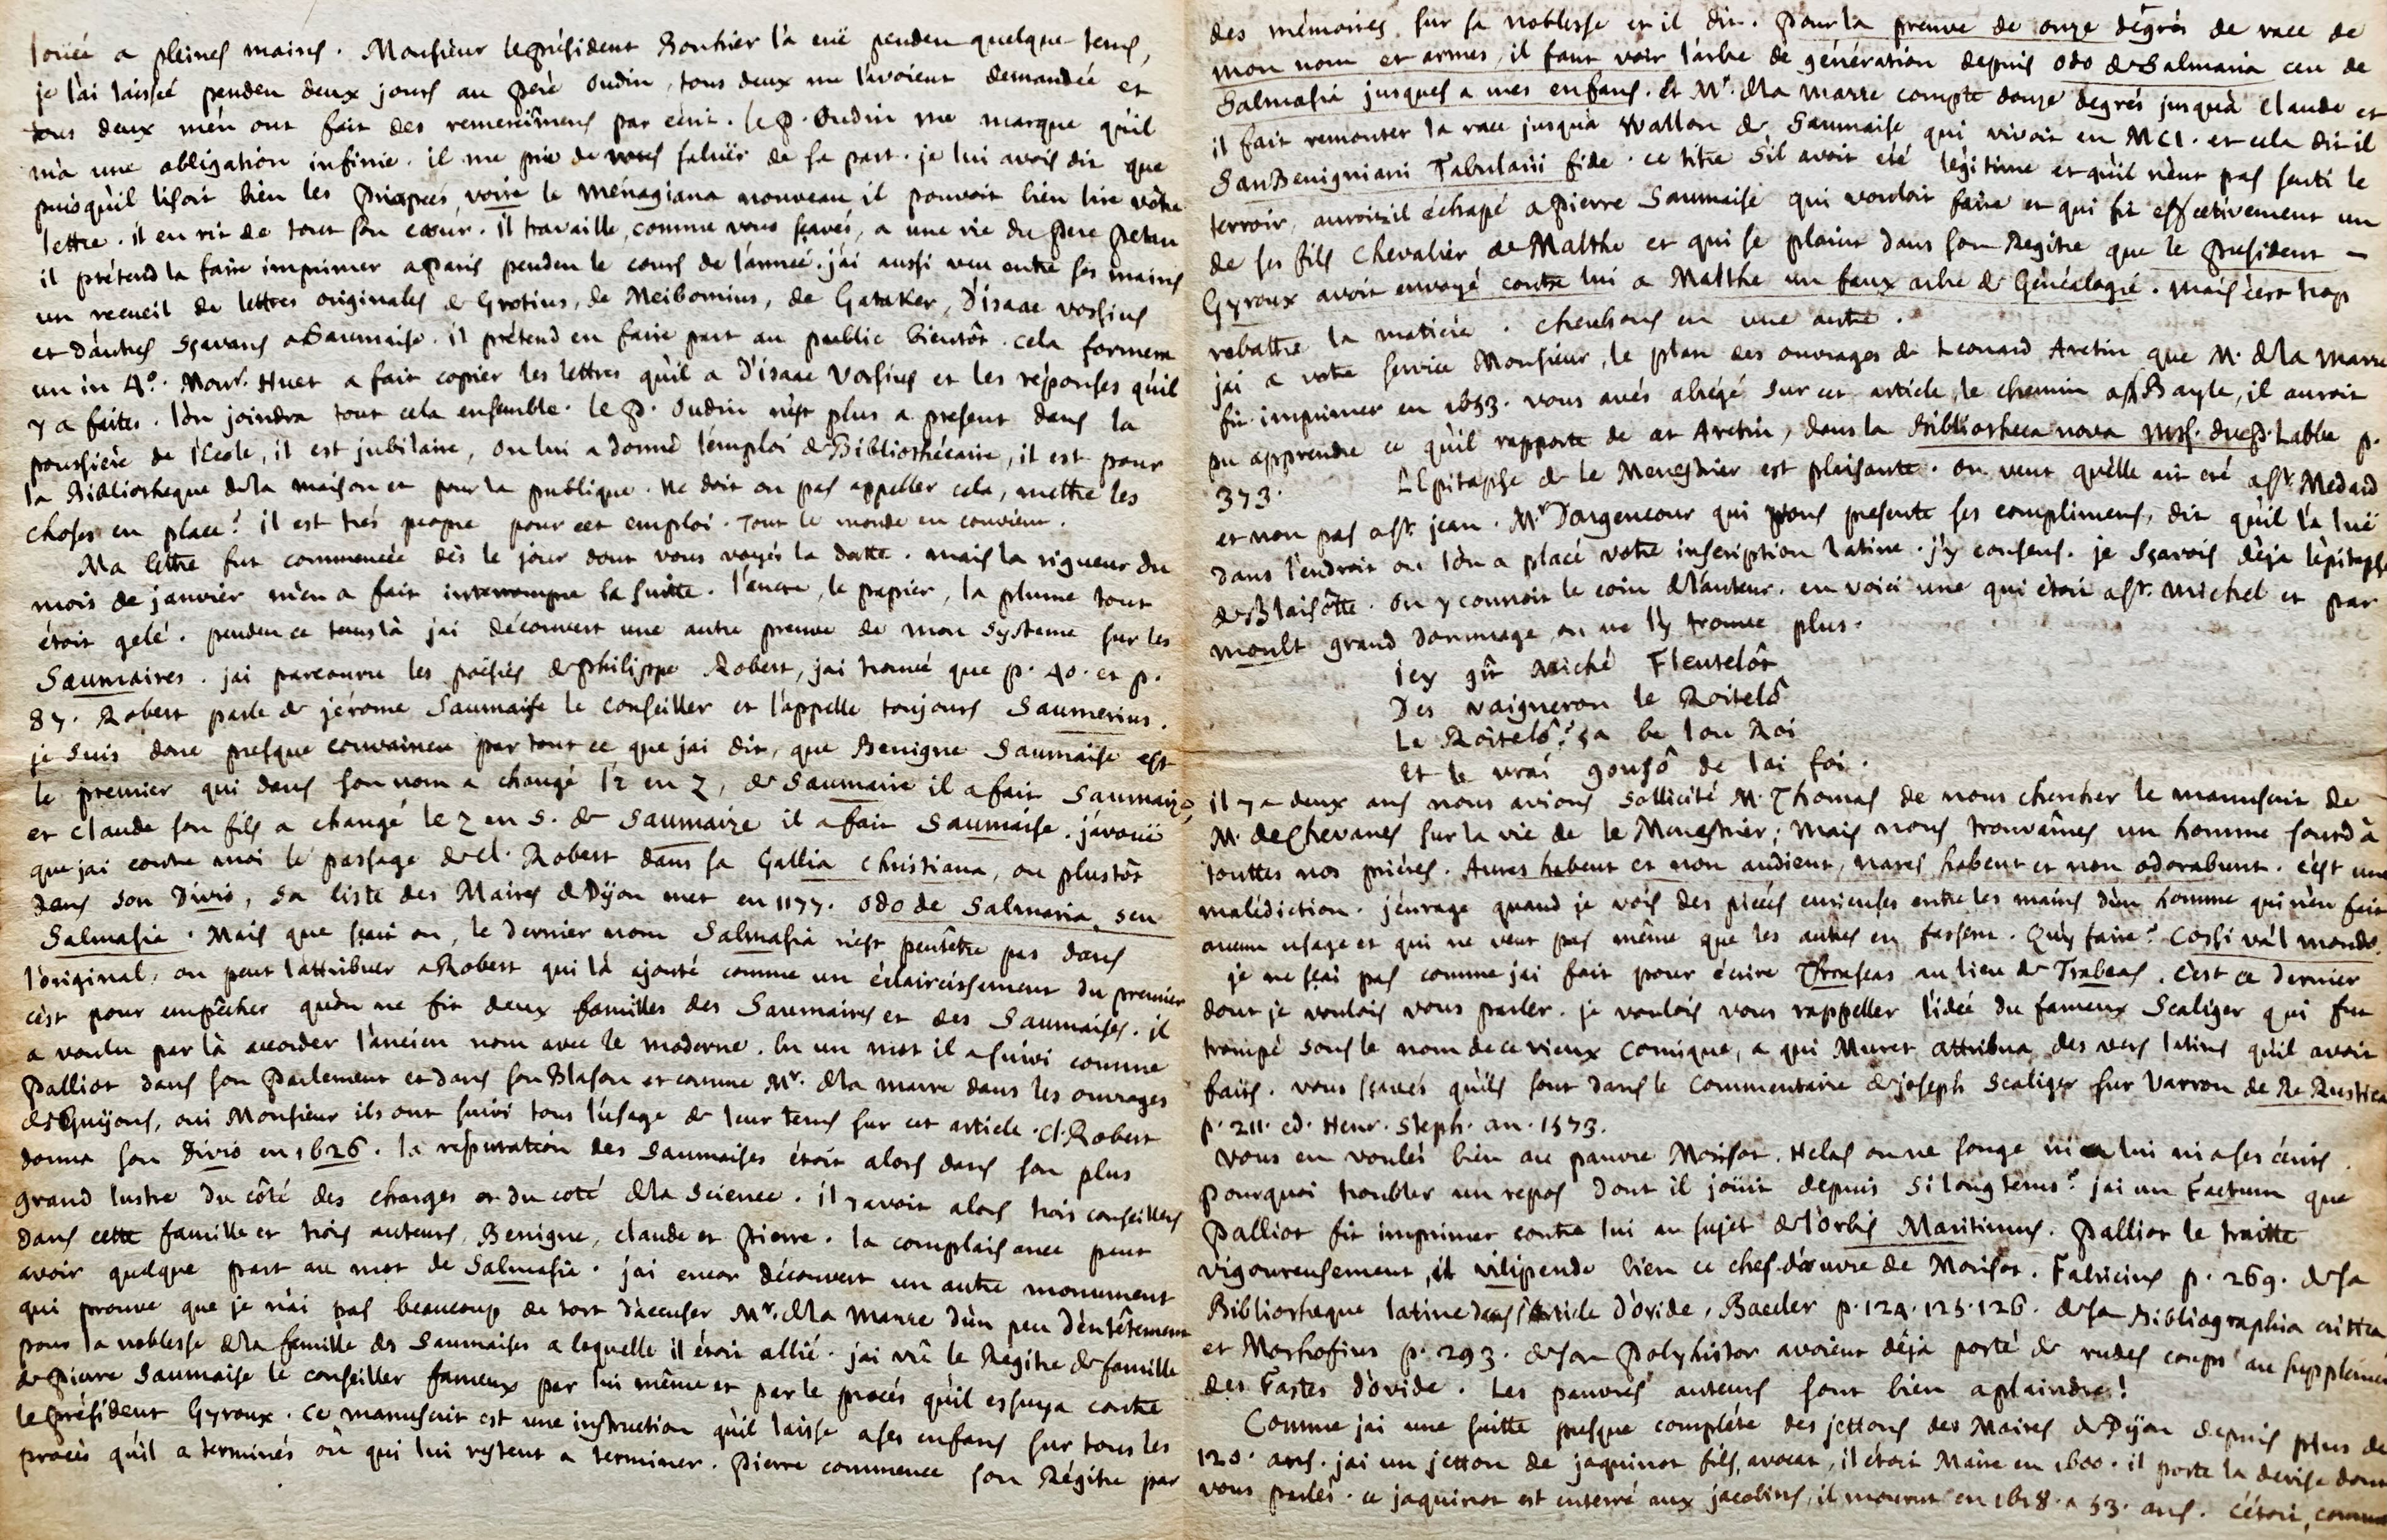 loüée a pleines mains. Monsieur le président Bouhier l'a eüe penden quelque tems,
je l'ai laissée penden deux jours au pere oudin, tous deux me l'avoient demandée et
tous deux m'en ont fait des remercîmens par écrit. le p. Oudin me marque qu'il
m'a une obligation infinie. il me prie de vous salüer de sa part. je lui avois dit que
puisqu'il lisoit bien les priapees, voire le menagiana nouveau il pouvoit bien lire vôtre
lettre. il en rit de tout son cœur. il travaille, comme vous sçavés, a une vie du Pere Petau
il prétend la faire imprimer a Paris penden le cours de l'année. j'ai aussi veu entre ses mains
un recueil de lettres originales de Grotius, de Meibomius, de Gataker, d'isaac vossius
et d'autres sçavans a Saumaise. il prétend en faire part au public bientôt. cela formera
un in 4°. Monsr. Huet a fait copier les lettres qu'il a d'isaac Vossius et les réponses qu'il
y a faites. l'on joindra tout cela ensemble. le P. Oudin n'est plus a present dans la
poussiére de l'école, il est jubilaire, on lui a donné l'emploi de Bibliothécaire, il est pour
la Bibliotheque de la maison et pour la publique. Ne doit on pas appeller cela, mettre les
choses en place? il est trés propre pour cet emploi. Tout le monde en convient.
Ma lettre fut commencée dès le jour dont vous voyés la datte. mais la rigueur du
mois de janvier m'en a fait interrompre la suitte. l'encre, le papier, la plume tout
étoit gelé. penden ce tems là j'ai découvert une autre preuve de mon systeme sur les
Saumaires. j'ai parcouru les poësies de philippe Robert, j'ai trouvé que p. 40. et p.
87. Robert parle de jérome Saumaise le conseiller et l'appelle toujours Saumerius.
je suis donc presque convaincu par tout ce que j'ai dit, que Benigne Saumaise est
le premier qui dans son nom a changé l'r en z, de Saumaire il a fait Saumaize,
et claude son fils a changé le z en s. de Saumaize il a fait Saumaise. j'avoüe
que j'ai contre moi le passage de cl. Robert dans sa Gallia christiana, ou plustôt
dans son Divio, sa liste des Maires de Dijon met en 1177. Odo de Salmaria, seu
Salmasia. Mais que sçait on, le dernier nom Salmasia n'est peutêtre pas dans
l'original, on peut l'attribuer a Robert qui l'a ajouté comme un éclaircissement du premier
c'est pour empêcher qu'on ne fit deux familles des Saumaires et des Saumaises. il
a voulu par là accorder l'ancien nom avec le moderne. En un mot il a suivi comme
Palliot dans son Parlement et dans son Blason et comme Mr. de la mare dans les ouvrages
des Guijons, oui Monsieur ils ont suivi tous l'usage de leur tems sur cet article. Cl. Robert
donna son Divio en 1626. la réputation des Saumaises étoit alors dans son plus
grand lustre du côté des charges et du coté de la science. il y avoit alors trois conseillers
dans cette famille et trois auteurs, Benigne, claude et Pierre. la complaisance peut
avoir quelque part au mot de Salmasia. j'ai encor découvert un autre monument
qui prouve que je n'ai pas beaucoup de tort d'accuser Mr. de la Marre d'un peu d'entêtement
pour la noblesse de la famille des Saumaises a laquelle il étoit allié. j'ai vû le Regitre de famille
de Pierre Saumaise le conseiller fameux par lui même et par le procés qu'il essuya contre
le président Gyroux. Ce manuscrit est une instruction qu'il laisse a ses enfans sur tous les
procès qu'il a terminés ou qui lui restent a terminer. Pierre commence son Régitre par
des mémoires sur sa noblesse et il dit. Pour la preuve de onze dégrés de race de
mon nom et armes, il faut voir l'arbre de génération depuis Odo de Salmaria ceu de
Salmasia jusques a mes enfans. Et Mr. de la Marre compte douze degrés jusqu'à claude et
il fait remonter la race jusqu'à Wallon de Saumaise qui vivoit en MCI. et cela dit il
SanBenigniani Tabularii fide. ce titre s'il avoit eté légitime et qu'il n'eut pas senti le
terroir, auroit il échapé a Pierre Saumaise qui vouloit faire et qui fit effectivement un
de ses fils chevalier de Malthe et qui se plaint dans son Regitre que le President
Gyroux avoit envoyé contre lui a Malthe un faux arbre de Généalogie. Mais c'est trop
rebattre la matiere. cherchons en une autre.
j'ai a votre service Monsieur, le plan des ouvrages de Leonard Aretin que M. de la Marre
fit imprimer en 1653. vous avés abrégé sur cet article, le chemin a Mr Bayle, il auroit
pu apprendre ce qu'il rapporte de cet Aretin, dans la Bibliotheca nova mss. du P. Labbe p.
373. L'Epitaphe de le Menestrier est plaisante. on veut qu'elle ait eté a st. Medard
et non pas a st. jean. Mr. Dargencour qui vous presente ses complimens, dit qu'il l'a luë
dans l'endroit ou l'on a placé votre inscription latine. j'y consens. je sçavois déja l'épitaphe
de Blaisôtte. on y connoit le coin de l'auteur. en voici une qui étoit a st. michel et par
moult grand dommage on ne l'y trouve plus.
Icy gît Miché Fleutelôt
Des vaigneron le Roitelô
Le Roitelô? ça be lou Roi
Et le vrai gousô de lai foi.
il y a deux ans nous avions sollicité M. Thomas de nous chercher le manuscrit de
M. de Chevanes sur la vie de le Menestrier; mais nous trouvâmes un homme sourd à
touttes nos priéres. Aures habent et non audient, nares habent et non odorabunt. c'est une
malédiction. j'enrage quand je vois des piéces curieuses entre les mains d'un homme qui n'en fait
aucun usage et qui ne veut pas même que les autres en fassent. Qu'y faire? Cossi va'l mondo.
je ne sçai pas comme j'ai fait pour écrire Thraseas au lieu de Trabeas. c'est ce dernier
dont je voulois vous parler. je voulois vous rappeller l'idée du fameux Scaliger qui fut
trompé sous le nom de ce vieux comique, a qui Muret attribua des vers latins qu'il avoit
faits. vous sçavés qu'ils sont dans le Commentaire de joseph Scaliger sur Varron de Re Rustica
p. 211. ed. Henr. Steph. an. 1573.
Vous en voulés bien au pauvre Morisot. Helas on ne songe ni a lui ni a ses écrits.
Pourquoi troubler un repos dont il joüit depuis si longtems? j'ai un Factum que
Palliot fit imprimer contre lui au sujet de l'orbis Maritimus. Palliot le traitte
vigoureusement, il vilipende bien ce chef-d'œuvre de Morisot. Fabricius p. 269. de sa
Bibliotheque latine dans l'article d'ovide, Baecler p. 124. 125. 126. de sa Bibliographia critica
et Morhofius p. 293. de son Polyhistor avoient déja porté de rudes coups au supplement
des Fastes d'ovide. Les pauvres auteurs sont bien a plaindre!
Comme j'ai une suitte presque complete des jettons des Maires de Dijon depuis plus de
120. ans. j'ai un jetton de jaquinot fils, avocat, il étoit Maire en 1600. il porte la devise dont
vous parlés. ce jaquinot est enterré aux jacobins, il mourut en 1618. a 53. ans. c'étoit, comme